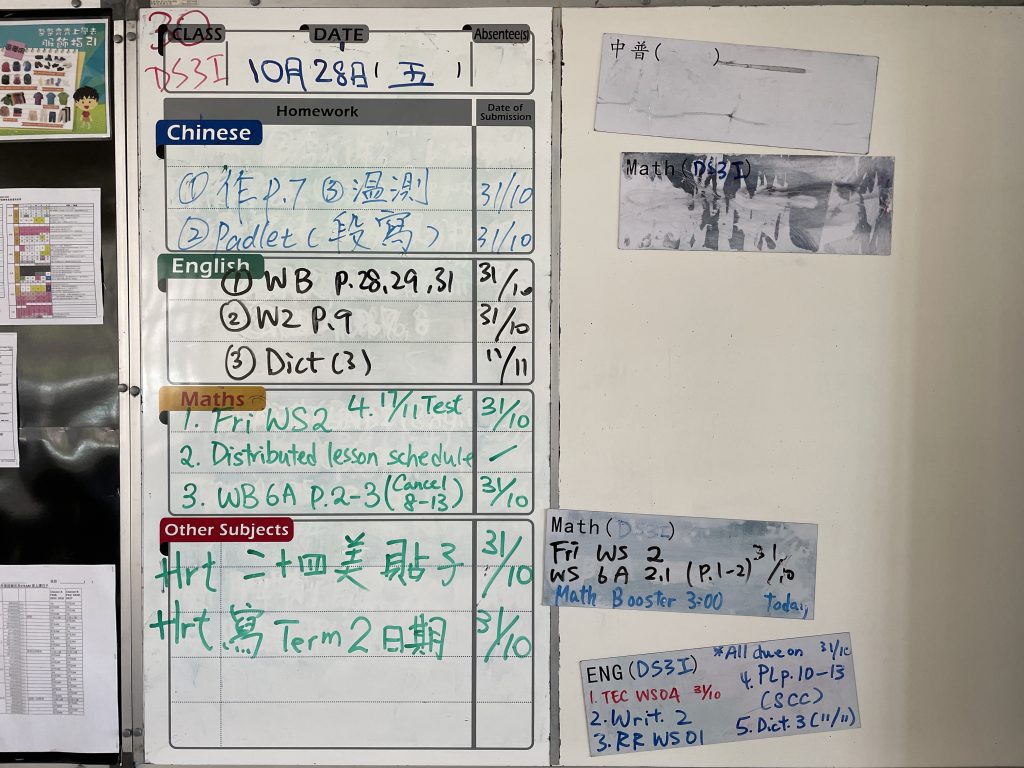 服飾指引
30
CLASS DATE Absentee(s)
DS3I 10月28日(五)
Homework Date of Submission
Chinese
①作P.7 ③溫測 31/10
②Padlet(段寫) 31/10
English
①WB P.28,29,31 31/10
②W2 P.9 31/10
③Dict(3) 11/11
Maths
1. Fri WS2 4. 17/11 Test 31/10
2. Distributed lesson schedule
3. WB 6A P.2-3 (Cancel 8-13) 31/10
Other Subjects
Hrt 二十四美貼子 31/10
Hrt 寫Term 2日期 31/10
中普( )
Math(DS3I)
Math(DS3I)
Fri WS 2
WS 6A 2.1 (P.1-2) 31/10
Math Booster 3:00 Today
ENG(DS3I) *All due on 31/10
1. TEC WS04 31/10
2. Writ. 2
3. RR WS01
4. PL p.10-13
(SCC)
5. Dict. 3 (11/11)